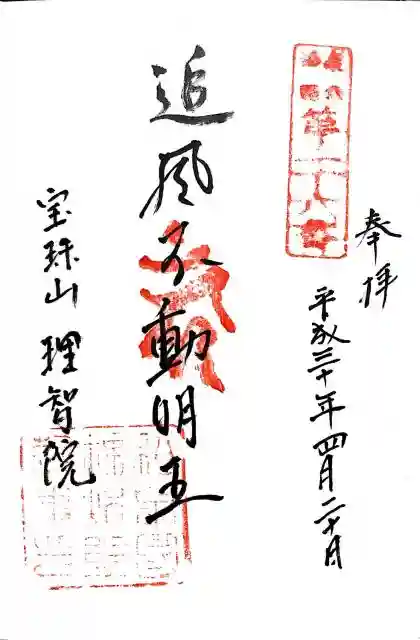 奉拝
平成三十年四月二十日
第二十八番
追風不動明王
宝珠山 理智院